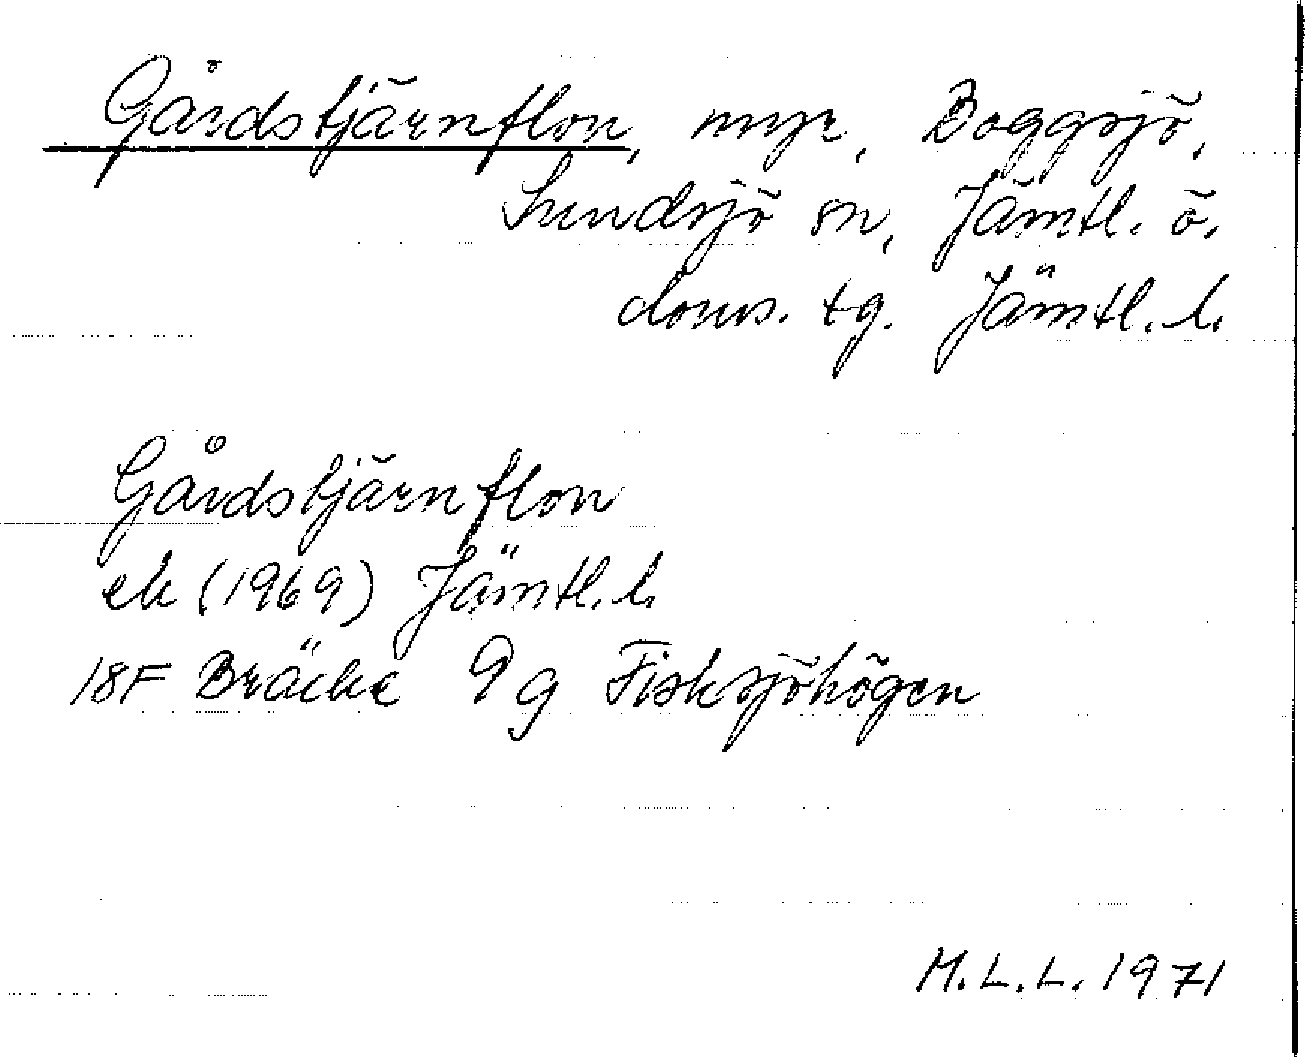 Gårdstjärnflon, myr, Boggsjö,
Sundsjö sn, Jämtl. ö.
doms. tg. Jämtl. l.
Gårdstjärnflon
ek (1969) Jämtl. l.
18F Bräcke 9g Fisksjöhögen
M.L.L. 1971